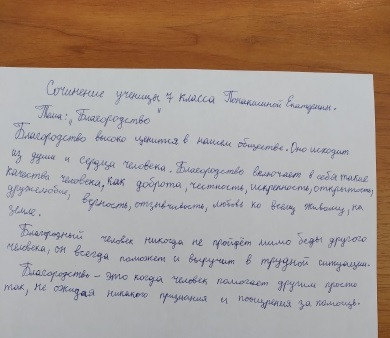 Сочинение ученицы 7 класса Понакшиной Екатерины.
Тема: „Благородство"
Благородство высоко ценится в нашем обществе. Оно исходит
из души и сердца человека. Благородство включает в себя такие
качества человека, как доброта, честность, искренность, открытость,
дружелюбие, верность, отзывчивость, любовь ко всему живому, на
земле.
Благородный человек никогда не пройдёт мимо беды другого
человека, он всегда поможет и выручит в трудной ситуации.
Благородство – это когда человек помогает другим просто
так, не ожидая никакого признания и поощрения за помощь.